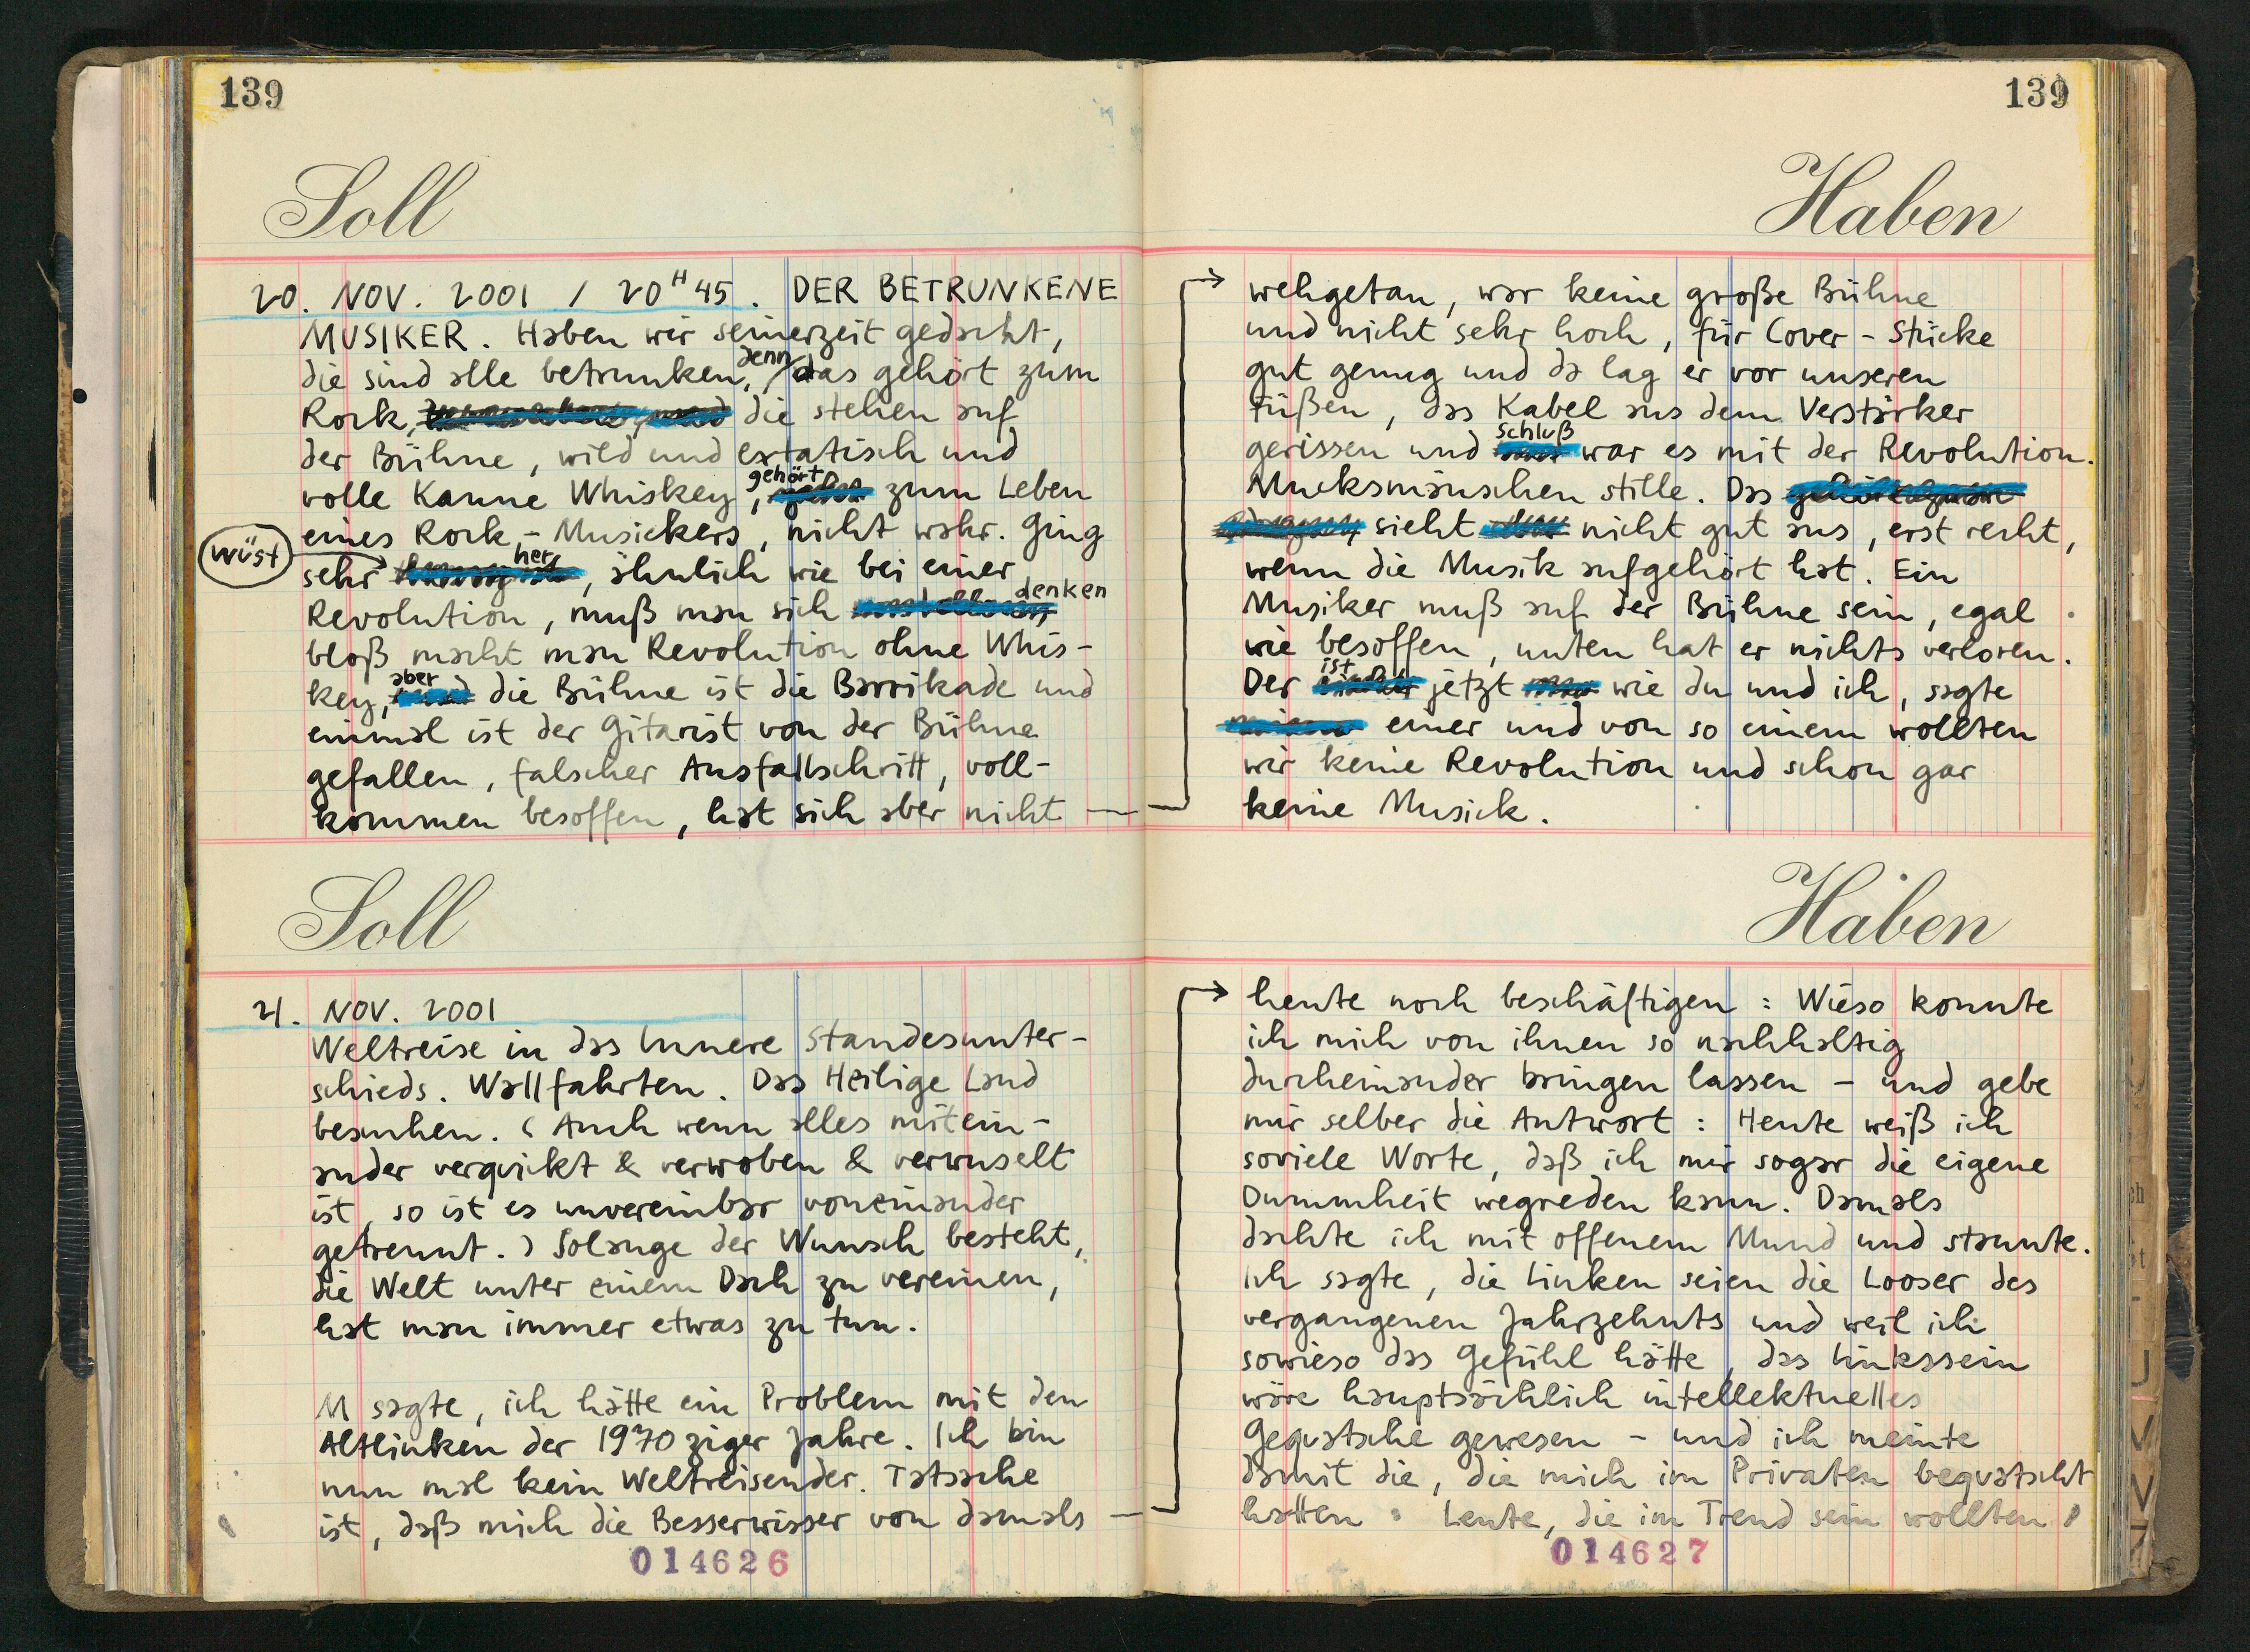 139
Soll
20. NOV. 2001 / 20 H 45. DER BETRUNKENE
MUSIKER. Haben wir seinerzeit gedacht,
die sind alle betrunken, denn das gehört zum
Rock, die stehen auf
der Bühne, wild und extatisch und
volle Kanne Whiskey, gehört zum Leben
eines Rock-Musickers, nicht wahr. Ging
sehr wüst her, ähnlich wie bei einer
Revolution, muß man sich denken
bloß macht man Revolution ohne Whis-
key, aber die Bühne ist die Barrikade und
einmal ist der Gitarist von der Bühne
gefallen, falscher Ausfallschritt, voll-
kommen besoffen, hat sich aber nicht
139
Haben
wehgetan, war keine große Bühne
und nicht sehr hoch, für Cover-Stücke
gut genug und da lag er vor unseren
Füßen, das Kabel aus dem Verstärker
gerissen und schluß war es mit der Revolution.
Mucksmäuschen stille. Das
sieht nicht gut aus, erst recht,
wenn die Musik aufgehört hat. Ein
Musiker muß auf der Bühne sein, egal
wie besoffen, unten hat er nichts verloren.
Der ist jetzt wie du und ich, sagte
einer und von so einem wollten
wir keine Revolution und schon gar
keine Musick.
Soll
21. NOV. 2001
Weltreise in das Innere Standesunter-
schieds. Wallfahrten. Das Heilige Land
besuchen. (Auch wenn alles mitein-
ander verquikt & verwoben & verwuselt
ist, so ist es unvereinbar voneinander
getrennt.) Solange der Wunsch besteht,
die Welt unter einem Dach zu vereinen,
hat man immer etwas zu tun.
M sagte, ich hätte ein Problem mit den
Altlinken der 1970ziger Jahre. Ich bin
nun mal kein Weltreisender. Tatsache
ist, daß mich die Besserwisser von damals
014626
Haben
heute noch beschäftigen: Wieso konnte
ich mich von ihnen so nachhaltig
durcheinander bringen lassen - und gebe
mir selber die Antwort: Heute weiß ich
soviele Worte, daß ich mir sogar die eigene
Dummheit wegreden kann. Damals
dachte ich mit offenem Mund und staunte.
Ich sagte, die Linken seien die Looser des
vergangenen Jahrzehnts und weil ich
sowieso das Gefühl hätte, das Linkssein
wäre hauptsächlich intellektuelles
Gequatsche gewesen - und ich meinte
damit die, die mich im Privaten bequatscht
hatten: Leute, die im Trend sein wollten
014627